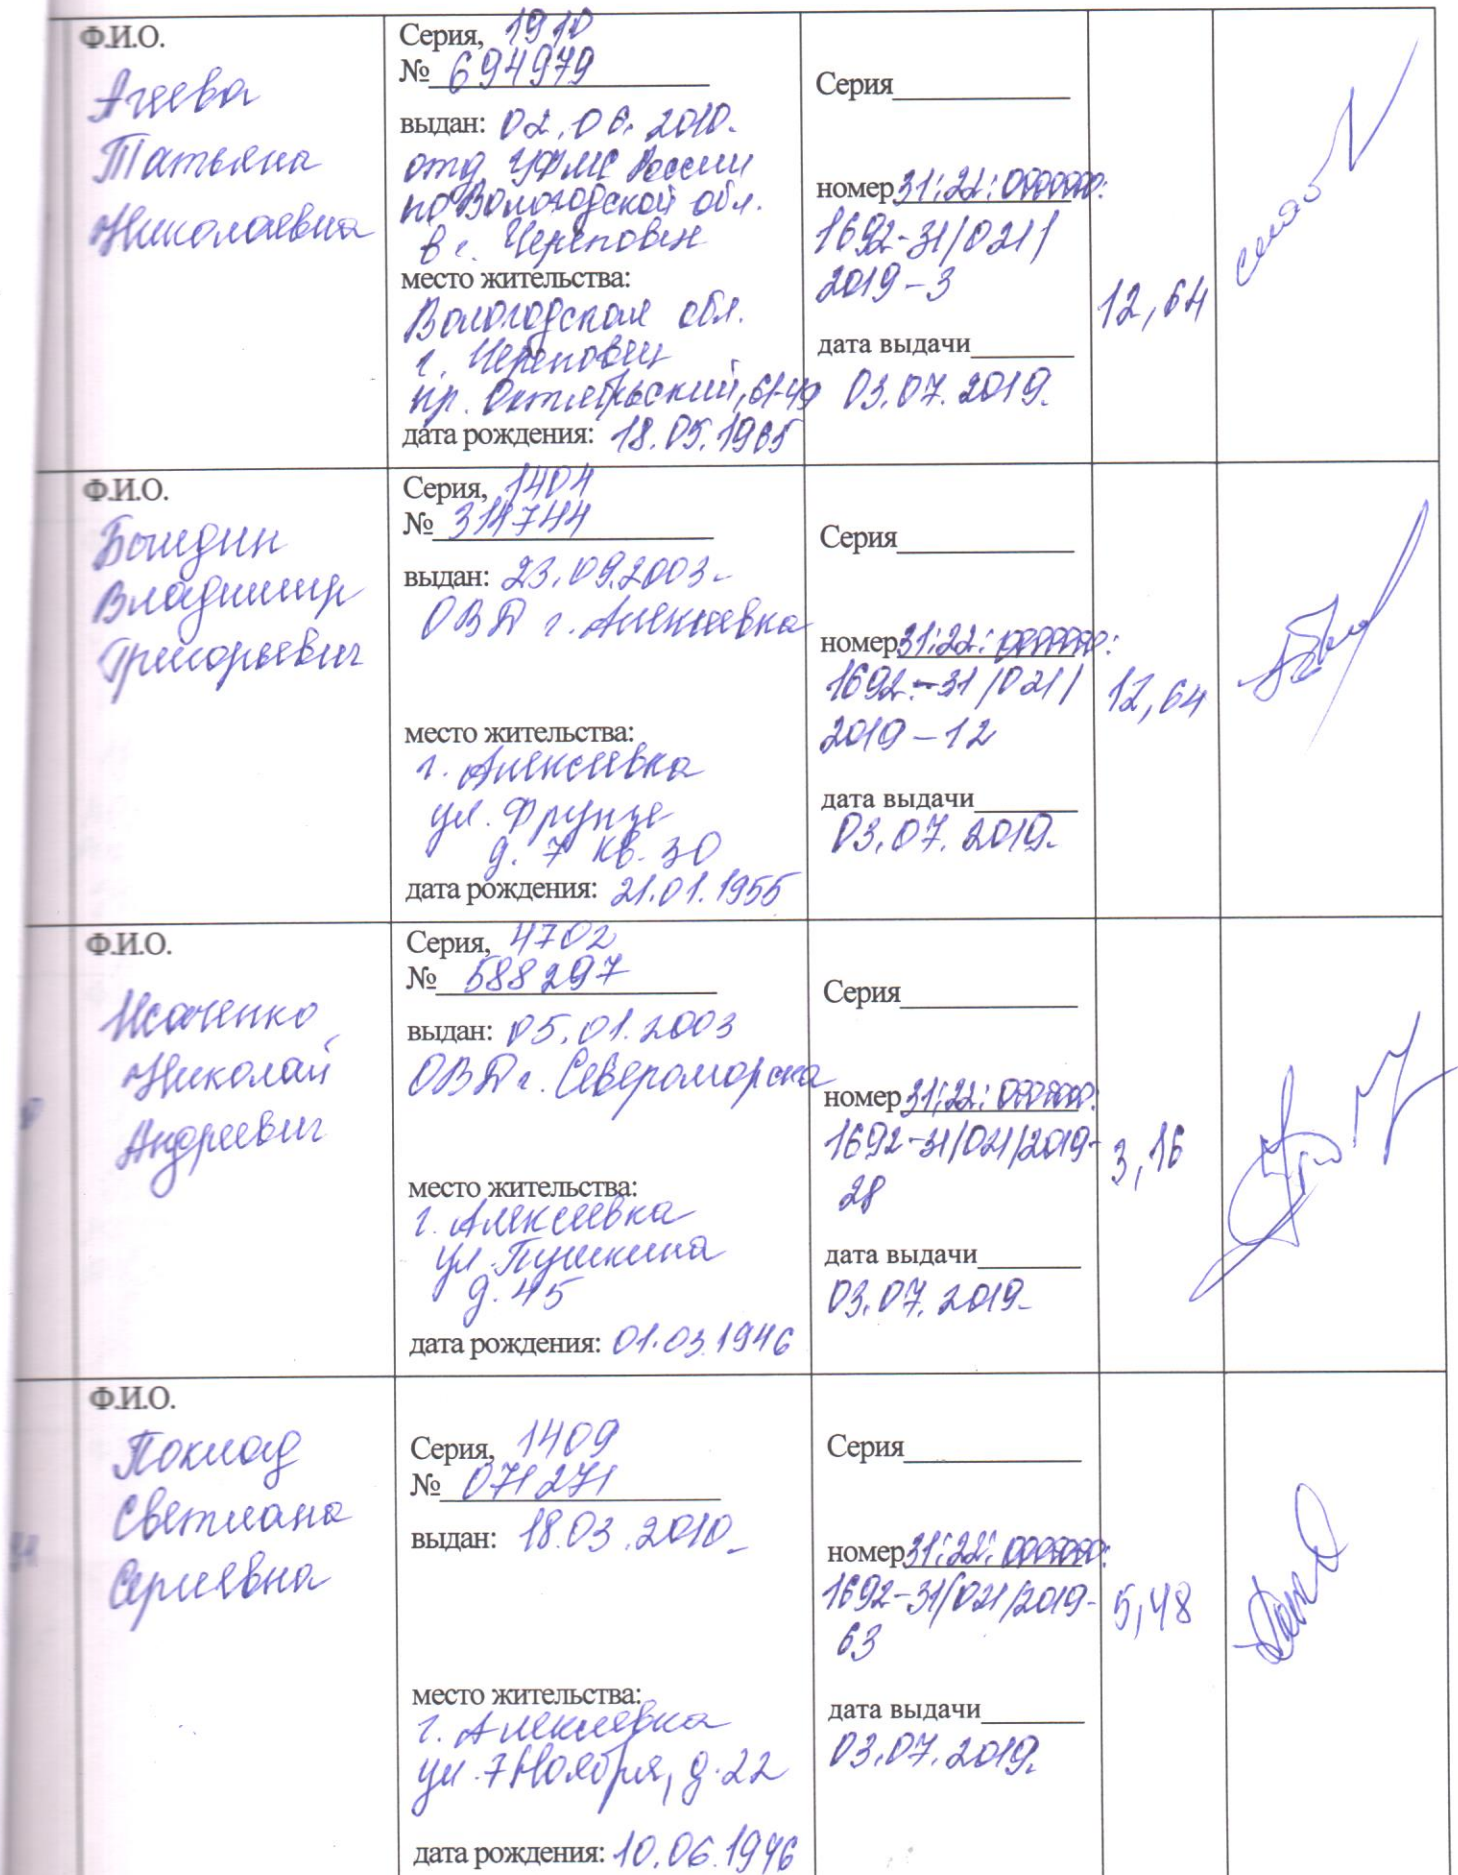 Ф.И.О.
Агеева
Татьяна
Николаевна
Серия, 1910
№ 694979
выдан: 02.06.2010.
отд УФМС России
по Вологодской обл.
в г. Череповце
место жительства:
Вологодская обл.
г. Череповец
пр. Октябрьский, 61-49
дата рождения: 18.05.1965
Серия
номер 31:22:0000000:
1692-31/021/
2019-3
дата выдачи
03.07.2019.
12,64
Ф.И.О.
Владимир
Григорьевич
Серия, 1404
№ 314744
выдан: 23.09.2003.
ОВД г. Алексеевка
место жительства:
г. Алексеевка
ул. Фрунзе
д. 7 кв. 30
дата рождения: 21.01.1955
Серия
номер 31:22:0000000:
1692-31/021/
2019-12
дата выдачи
03.07.2019.
12,64
Ф.И.О.
Исаченко
Николай
Андреевич
Серия, 4702
№ 588297
выдан: 05.01.2003
ОВД г. Североморска
место жительства:
г. Алексеевка
ул. Пушкина
д. 45
дата рождения: 01.03.1946
Серия
номер 31:22:0000000:
1692-31/021/2019-
28
дата выдачи
03.07.2019.
3,16
Ф.И.О.
Поклад
Светлана
Сергиевна
Серия, 1409
№ 071271
выдан: 18.03.2010.
место жительства:
г. Алексеевка
ул. 7 Ноября, д. 22
дата рождения: 10.06.1946
Серия
номер 31:22:0000000:
1692-31/021/2019-
63
дата выдачи
03.07.2019.
5,48